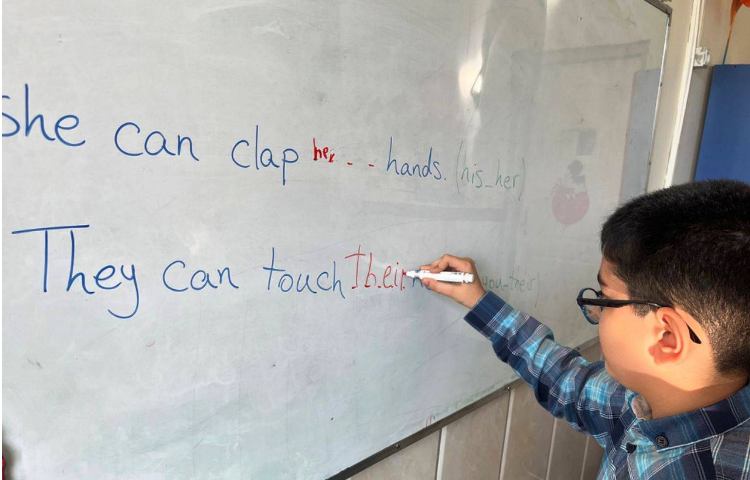 She can clap her... hands. (his_her)
They can touch Their (you_their)